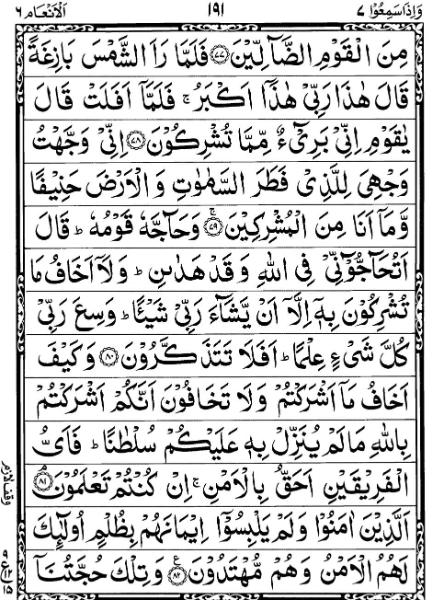 وَاِذَاسَمِعُوْا ٧ ١٩١ اَلْاَنْعَام ٦
مِنَ الْقَوْمِ الضَّآلِّيْنَ ﴿٧٧﴾ فَلَمَّا رَاَ الشَّمْسَ بَازِغَةً
قَالَ هٰذَا رَبِّيْ هٰذَآ اَكْبَرُ ۚ فَلَمَّآ اَفَلَتْ قَالَ
يٰقَوْمِ اِنِّيْ بَرِيْٓءٌ مِّمَّا تُشْرِكُوْنَ ﴿٧٨﴾ اِنِّيْ وَجَّهْتُ
وَجْهِيَ لِلَّذِيْ فَطَرَ السَّمٰوٰتِ وَ الْاَرْضَ حَنِيْفًا
وَّمَآ اَنَا مِنَ الْمُشْرِكِيْنَ ۚ﴿٧٩﴾ وَحَآجَّهٗ قَوْمُهٗ ؕ قَالَ
اَتُحَآجُّوْٓنِّيْ فِي اللّٰهِ وَ قَدْ هَدٰىنِ ؕ وَلَآ اَخَافُ مَا
تُشْرِكُوْنَ بِهٖٓ اِلَّآ اَنْ يَّشَآءَ رَبِّيْ شَيْـًٔا ؕ وَسِعَ رَبِّيْ
كُلَّ شَيْءٍ عِلْمًا ؕ اَفَلَا تَتَذَكَّرُوْنَ ﴿٨٠﴾ وَكَيْفَ
اَخَافُ مَآ اَشْرَكْتُمْ وَلَا تَخَافُوْنَ اَنَّكُمْ اَشْرَكْتُمْ
بِاللّٰهِ مَا لَمْ يُنَزِّلْ بِهٖ عَلَيْكُمْ سُلْطٰنًا ؕ فَاَيُّ
الْفَرِيْقَيْنِ اَحَقُّ بِالْاَمْنِ ۚ اِنْ كُنْتُمْ تَعْلَمُوْنَ ۘ﴿٨١﴾
اَلَّذِيْنَ اٰمَنُوْا وَلَمْ يَلْبِسُوْٓا اِيْمَانَهُمْ بِظُلْمٍ اُولٰٓئِكَ
لَهُمُ الْاَمْنُ وَهُمْ مُّهْتَدُوْنَ ﴿٨٢﴾ ع وَتِلْكَ حُجَّتُنَآ
وقف لازم
ع ٩ ١٥